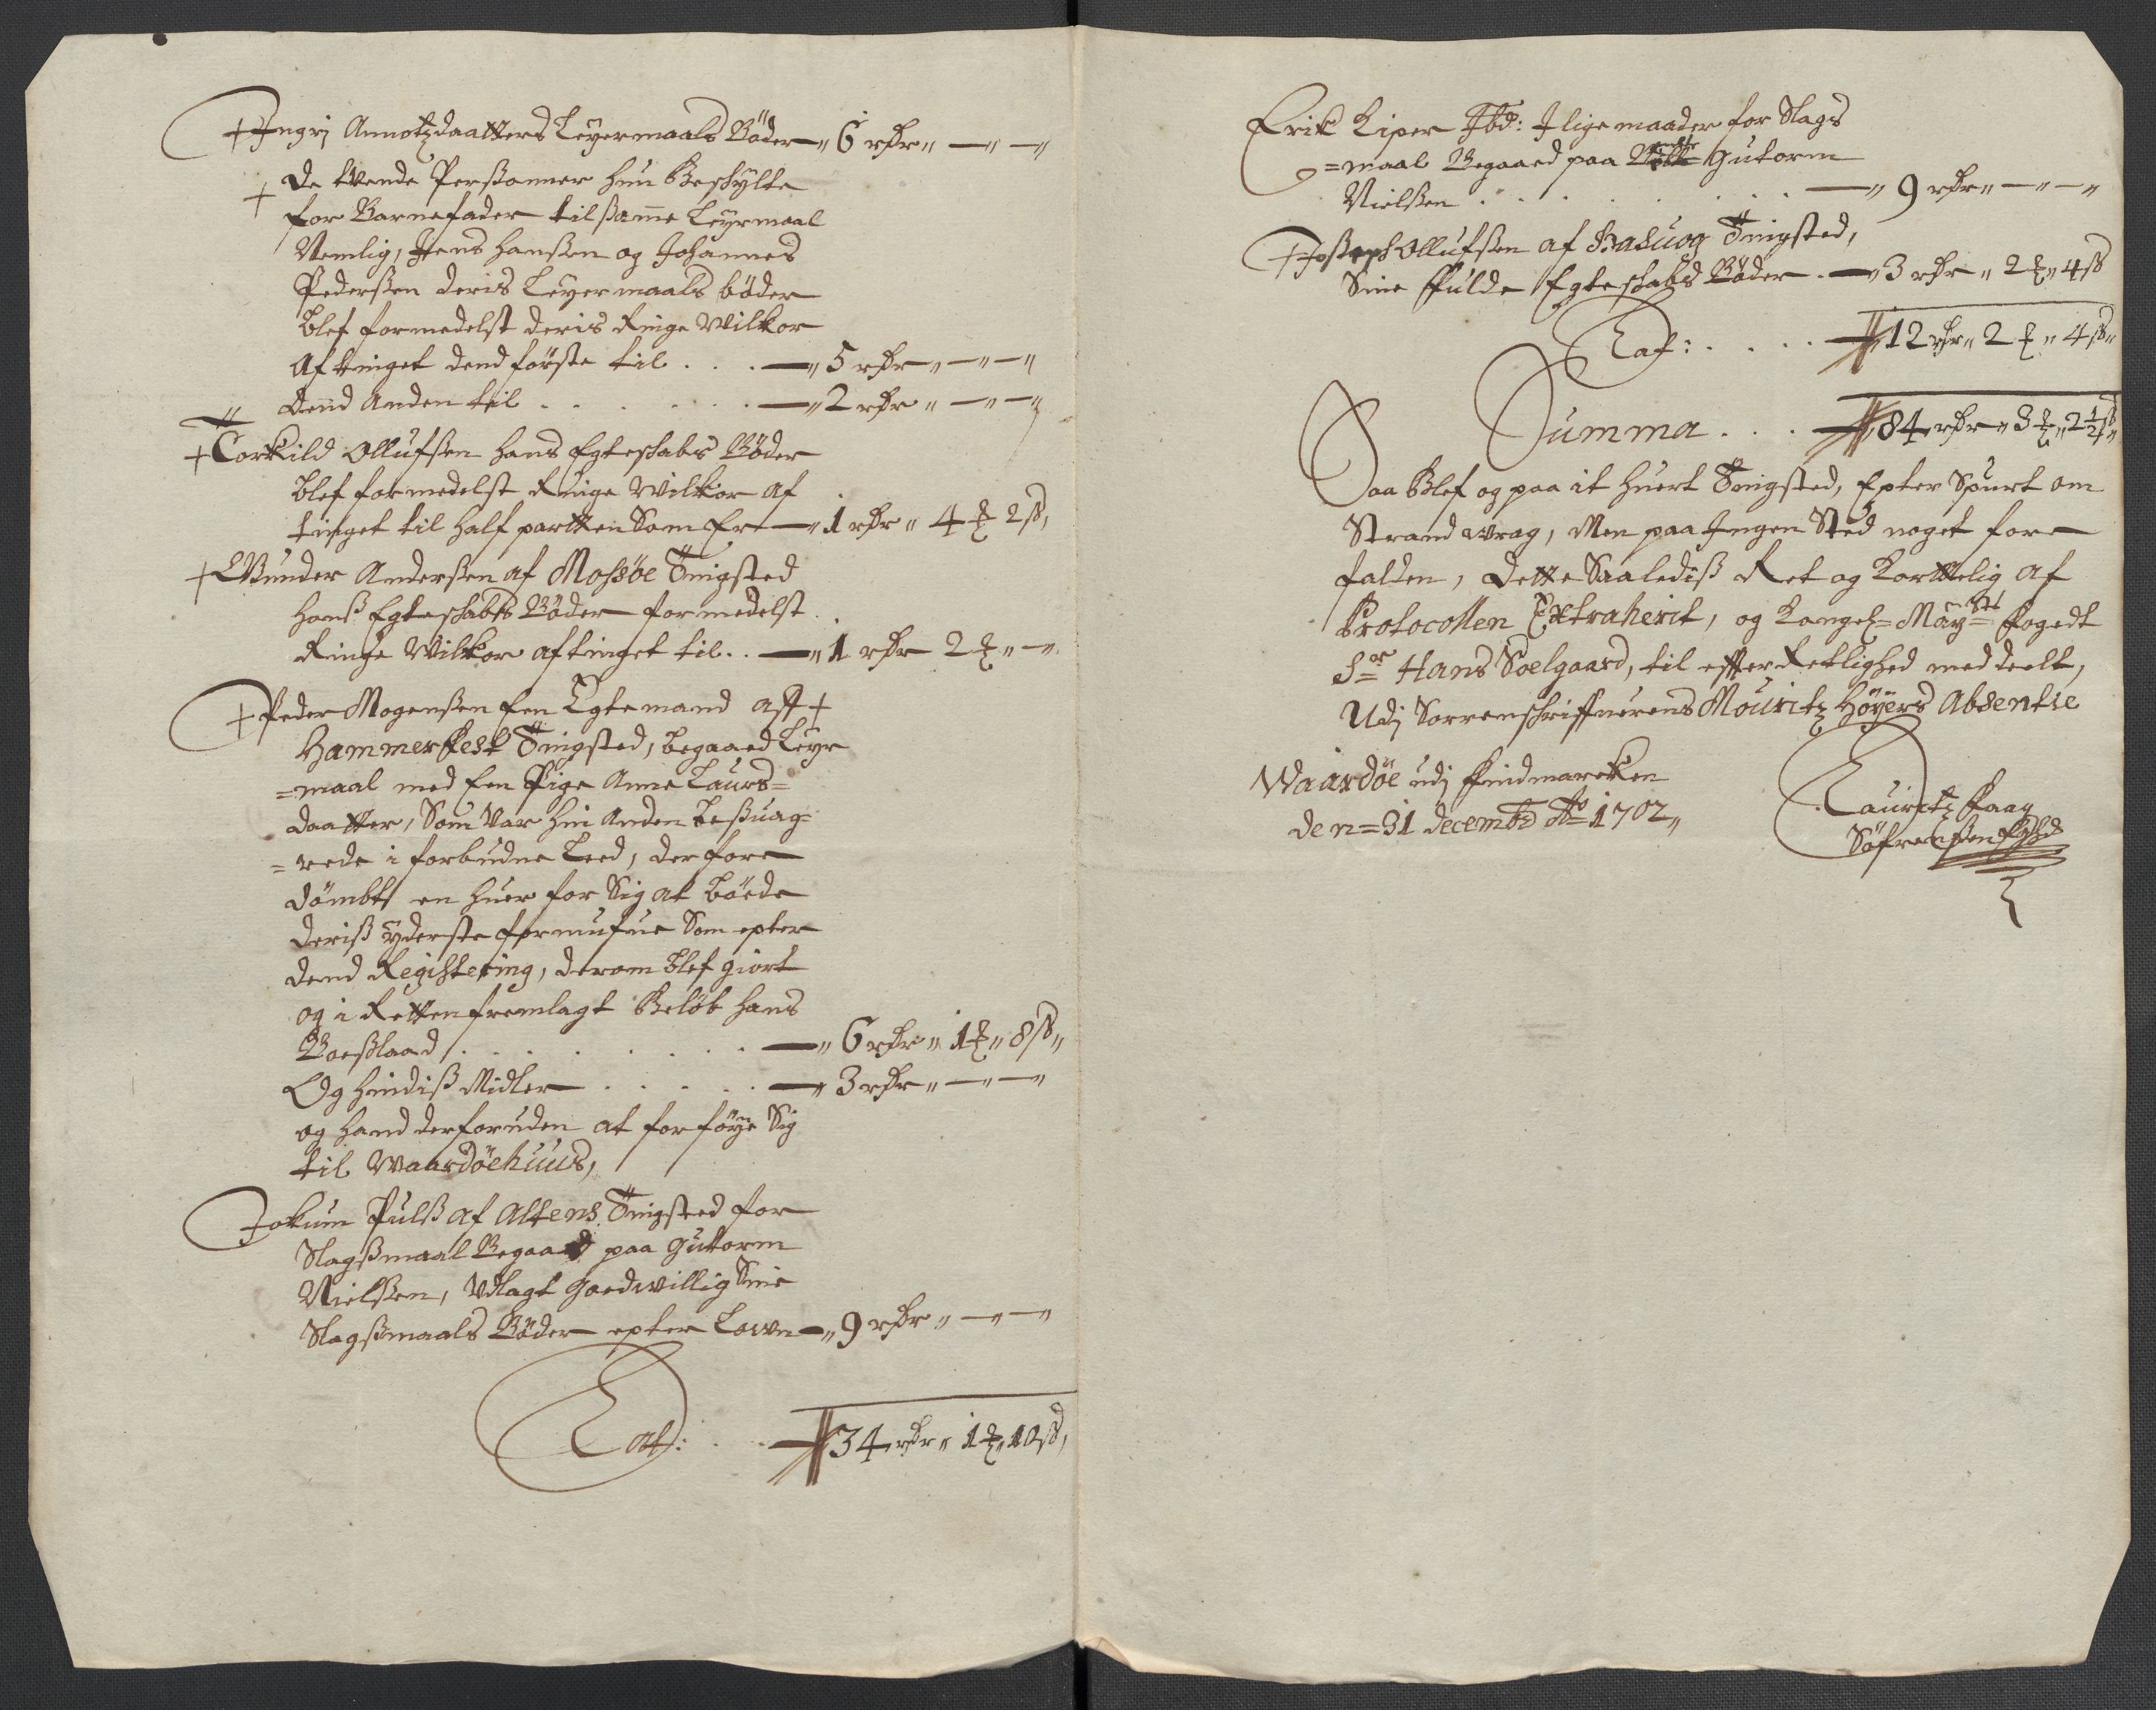 + Ingri Annotzdaatters Leyermaals Böder — 6 rdr „ — „ — „
+ De tvende Perßonner hun Beskylte
for Barnefader til ßamme Leyrmaal
Nemlig, Jens Hanßen og Johannes
Pederßen deris Leyermaals böder
blef formedelst deris Ringe Wilkor
Aftinget dend förste til . . . — „ 5 rdr „ — „ — „
Dend Anden til . . . . . . — „ 2 rdr „ — „ — „
+ Torkild Ollufsen hans Egteskabs Böder
blef formedelst Ringe Wilkor af
tinget til half partten Som Er — „ 1 rdr „ 4 ℔ 2 ß,
+ Gunder Anderßen af Mohsöe Tingsted
Hanß Egteskabs Böder formedelst
Ringe Wilkor aftinget til . . — „ 1 rdr 2 ℔ „ — „
+ Peder Mogenßen Een Egtemand aff +
Hammerfest Tingsted, begaaed Leyr
=maal med Een Pige Anne Laurs=
daatter, Som var hin Anden beßuag=
=rede i forbudne Leed, derfore
dömbt en huer for Sig at böede
deriß yderste formufue Som epter
dend Registering, derom blef giort
og i Retten fremlagt Belöb hans
Boeßlaad . . . . . . — „ 6 rdr „ 1 ℔ „ 8 ß „
Og hindiß Midler . . . . . — „ 3 rdr „ — „ — „
og hand derforuden at forföye Sig
til Waardöehuus,
Jokum Pulß af Altens Tingsted for
Slagßmaal Begaaed paa Guttorm
Nielßen, Udlagt goedwillig Sine
Slagßmaals Böder epter Lowen — „ 9 rdr „ — „ — „
Lat: . . — 34 rdr „ 1 ℔ „ 10 ß,
Erik Kiper Ibd: J lige maader for Slags
=maal Begaaed paa Gutorm
Nielßen . . . . . . — „ 9 rdr „ — „ — „
+ Joßeph Ollufßen af Haßuog Tingsted,
Sine ffulde Egteskabs Böder . — „ 3 rdr „ 2 ℔ „ 4 ß
Lat: . . . . — „ 12 rdr „ 2 ℔ „ 4 ß „
Summa . . . — 84 rdr „ 3 ℔ „ 2 1/2 ß „
Saa Blef og paa it huert Tingsted, Epter Spurt om
Strand wrag, Men paa Ingen Sted noget fore
falden, Dette Saalediß Ret og Korttelig af
Protocollen Extraherit, og Kongel= Mayts fogedt
Sr Hans Soelgaard, til effterRetlighed meddeelt,
Udj Sorrenschriffuerens Mouritz Höyers Absentse
Waardöe udj ffindmarcken
den=31 decembr Ao 1702„
Lauritz ffaag
Söfrenßen